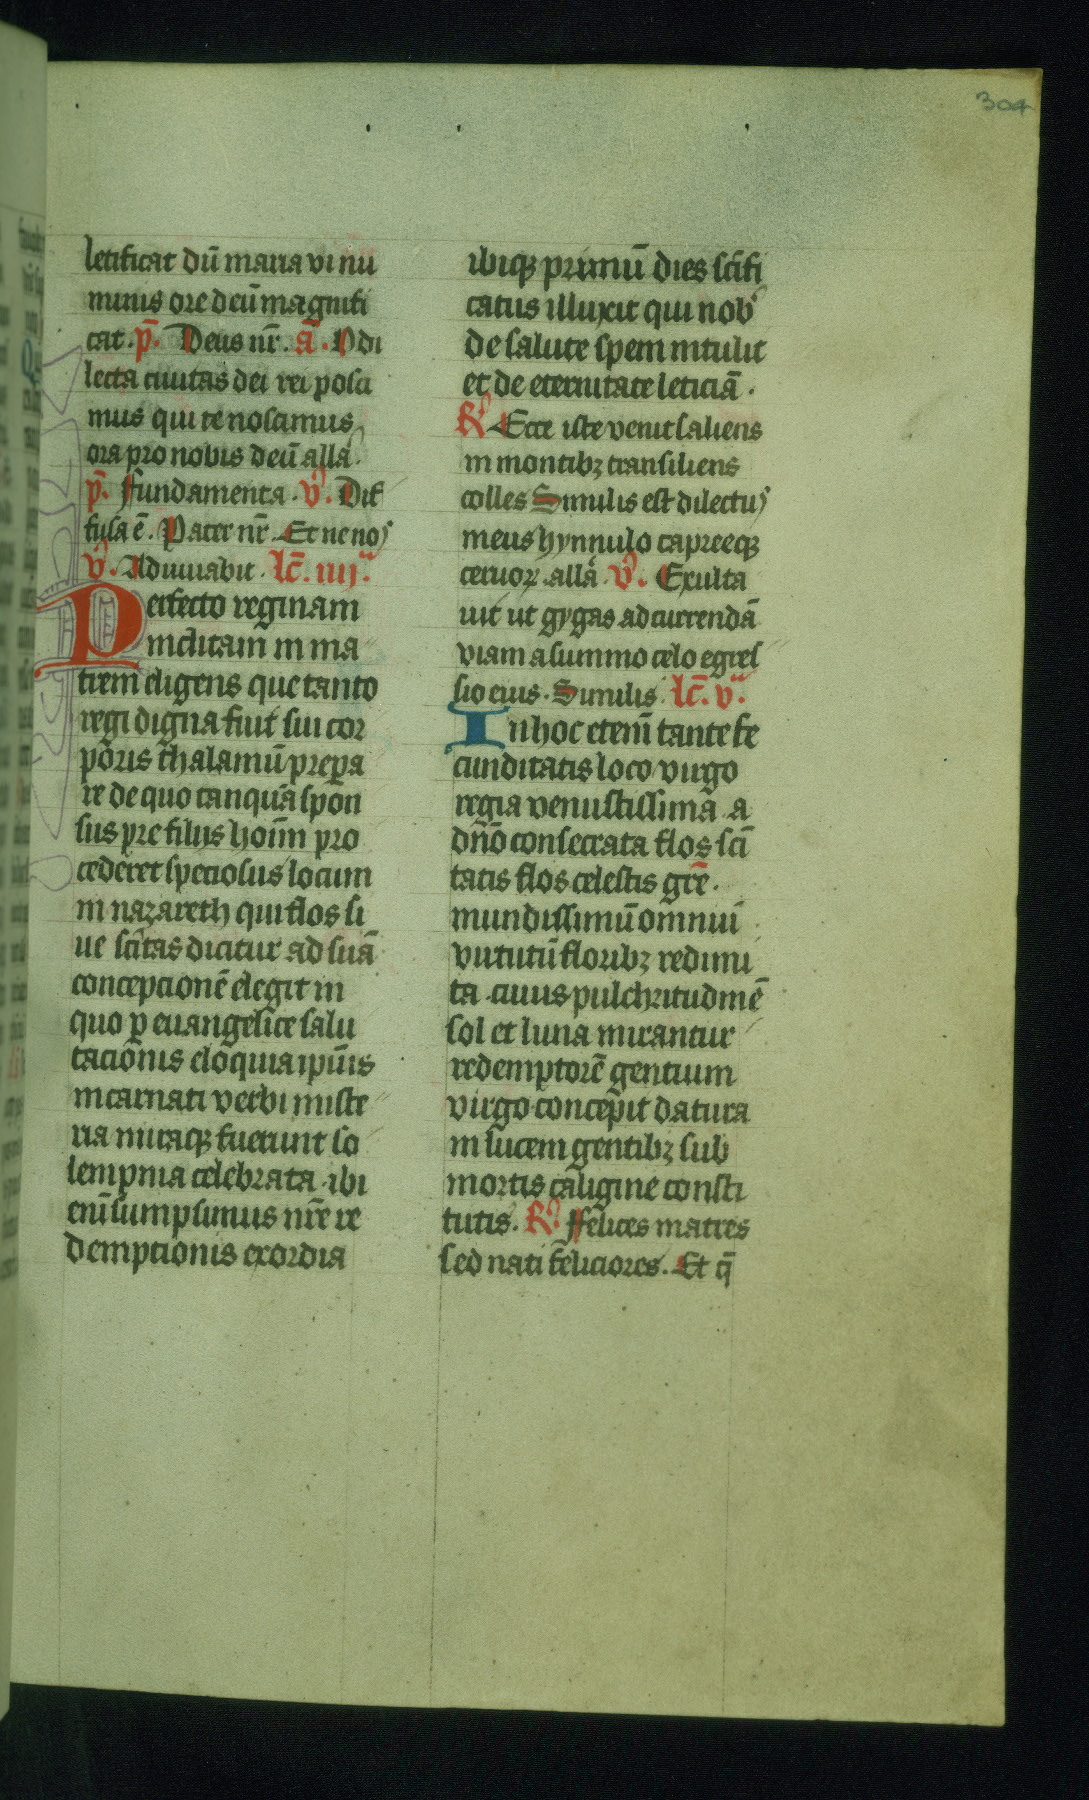 304
letificat dū maria vi nu
minis ore deū magnifi
cat. p̄. Deus nr̄. ā. O di
lecta ciuitas dei rei posci
mus qui te noscimus
ora pro nobis deū alla.
p̄. Fundamenta. v̄. Dif
fusa ē. Pater nr̄. Et ne nos
v̄. Adiuuabit. lc̄. iiij.
Perfecto reginam
inclitam in ma
trem eligens que tanto
regi digna fuit sui cor
poris thalamū prepa
re de quo tanquā spon
sus pre filijs hoīm pro
cederet speciosus locum
in nazareth qui flos si
ue sc̄itas dicitur ad suā
concepcionē elegit in
quo p̱ euangelice salu
tacionis eloquia ipiīs
incarnati verbi miste
ria miraqꝫ fuerunt so
lempnia celebrata. ibi
enī sumpsimus nrē re
demptionis exordia
ibiqꝫ primū dies sc̄ifi
catus illuxit qui nobˢ
de salute spem intulit
et de eternitate leticiā.
R̄. Ecce iste venit saliens
in montibꝫ transiliens
colles Similis est dilectus
meus hynnulo capreeqꝫ
ceruoꝝ. alla. v̄. Exulta
uit ut gygas ad currendā
viam a summo celo egres
sio eius. Similis. lc̄. v.
In hoc etenī tante fe
cunditatis loco virgo
regia venustissima a
dn̄o consecrata flos sc̄i
tatis flos celestis grē.
mundissimū omnui
virtutū floribꝫ redimi
ta. cuius pulchritudinē
sol et luna mirantur
redemptorē gentium
virgo concepit datura
in lucem gentibꝫ sub
mortis caligine consti
tutis. R̄. Ffelices matres
sed nati feliciores. Et q̄